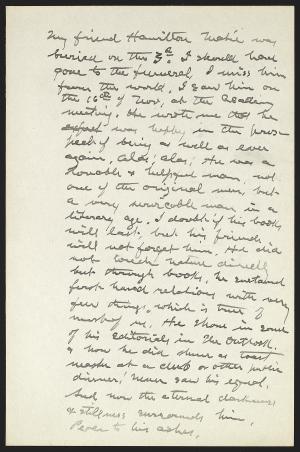 My friend Hamilton Mabie was
buried on this 3d. I should have
gone to the funeral, I miss him
from the world. I saw him on
the 16th of Nov, at the Academy
meeting. He wrote me that he
was happy in the pros-
pect of being as well as ever
again, Alas, alas, He was a
lovable & helpful man, not
one of the original men, but
a very serviceable man in a
literary age. I doubt if his books
will last: but his friends
will not forget him. He did
not touch nature directly
but through books, he sustained
first hand relations with very
few things, which is true of
most of us. He shone in some
of his editorials in The Outlook.
& how he did shine as toast
master at a club or other public
dinner! Never saw his equal.
And now the eternal darkness
& stillness surrounds him.
Peace to his ashes.